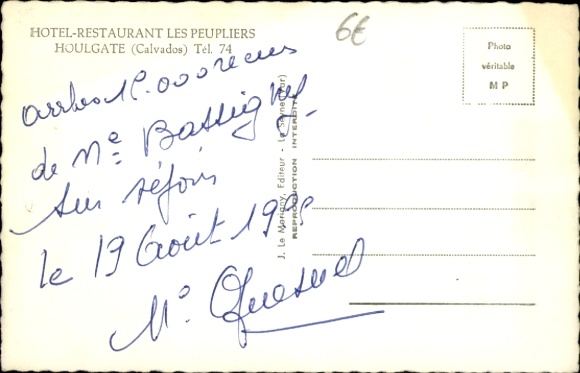 HOTEL-RESTAURANT LES PEUPLIERS
HOULGATE (Calvados) Tél. 74
6€
Photo
véritable
M P
arrhes 10.000 recus
de Me Bassigny
sur séjour
le 19 Août
Me Quesnel
J. Le Marigny, Editeur - La Seyne (Var)
REPRODUCTION INTERDITE